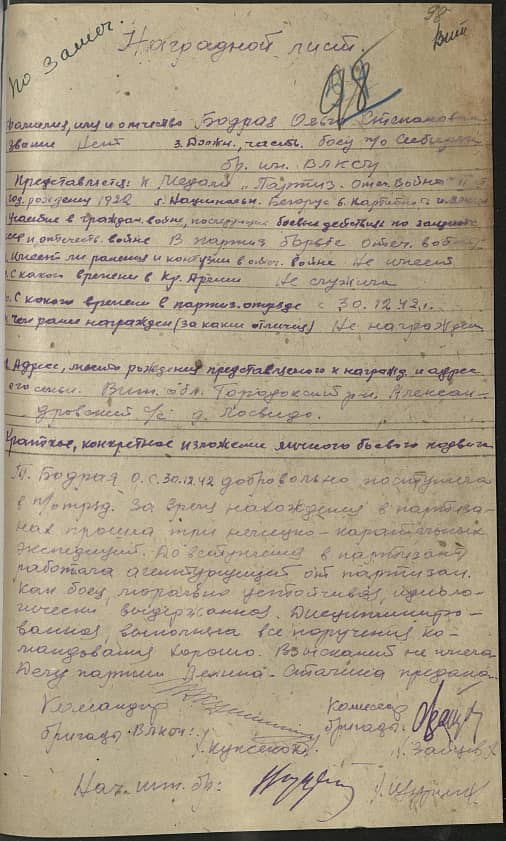 98
Вит
по замеч.
Наградной лист.
98
Фамилия, имя и отчество Бодрая Ольга Степановна
Звание нет 3. Должн., часть. боец п/о
бр. им. ВЛКСМ
Представляется: к медали "Партиз. Отеч. Война"
год рождения 1922 5. Национальн. Белорус 6. Партийность
Участие в граждан. войне, последующих боевых действиях по защите
и отечеств. войне В партиз. борьбе отеч. войны
Имеет ли ранения и контузии в отеч. войне Не имеет
С какого времени в Кр. Армии Не служила
С какого времени в партиз. отряде с 30.12.42 г.
Чем ранее награжден (за какие отличия) Не награжден
Адрес, место рождения представляемого к награжд. и адрес
его семьи. Вит. обл. Городокский р-н. Алексан-
дровский с/с д.
Краткое, конкретное изложение личного боевого подвига
Т. Бодрая О.С. 30.12.42 добровольно поступила
в п/отряд. За время нахождения в партиза-
нах прошла три немецко-карательных
экспедиций. До вступления в партизаны
работала агентурщицей от партизан.
Как боец, морально устойчивая, идеоло-
гически выдержанная. Дисциплиниро-
ванная, выполняла все поручения ко-
мандования хорошо. Взысканий не имела
Делу партии Ленина-Сталина предана.
Командир
Комиссар
бригады ВЛКСМ:
бригады:
Нач. шт. бр: